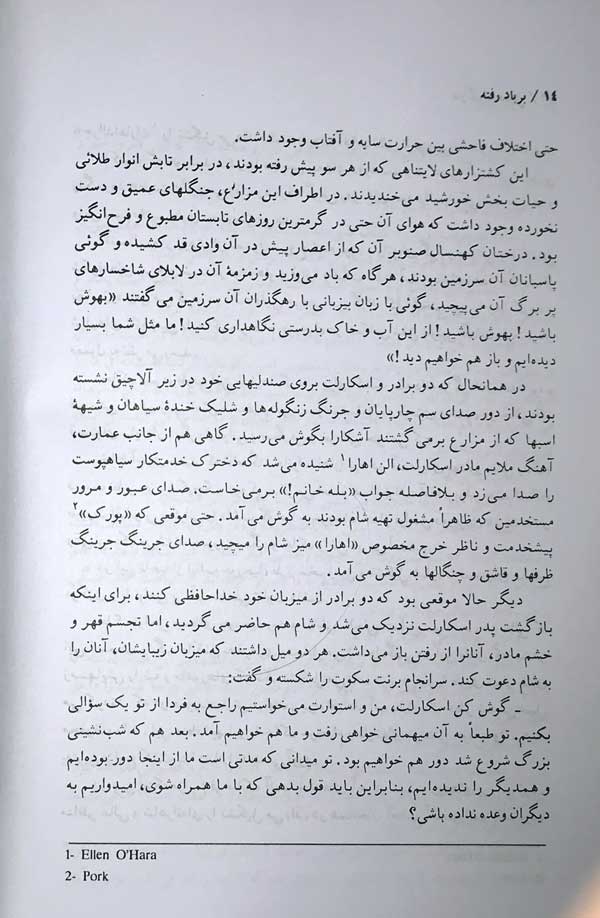 ۱۴ / بر باد رفته
حتی اختلاف فاحشی بین حرارت سایه و آفتاب وجود داشت.
این کشتزارهای لایتناهی که از هر سو پیش رفته بودند، در برابر تابش انوار طلائی
و حیات بخش خورشید می‌خندیدند. در اطراف این مزارع، جنگلهای عمیق و دست
نخورده وجود داشت که هوای آن حتی در گرمترین روزهای تابستان مطبوع و فرح‌انگیز
بود. درختان کهنسال صنوبر آن که از اعصار پیش در آن وادی قد کشیده و گوئی
پاسبانان آن سرزمین بودند، هرگاه که باد می‌وزید و زمزمهٔ آن در لابلای شاخسارهای
پر برگ آن می‌پیچید، گوئی با زبان بیزبانی با رهگذران آن سرزمین می‌گفتند «بهوش
باشید! بهوش باشید! از این آب و خاک بدرستی نگاهداری کنید! ما مثل شما بسیار
دیده‌ایم و باز هم خواهیم دید!»
در همانحال که دو برادر و اسکارلت بروی صندلیهایی خود در زیر آلاچیق نشسته
بودند، از دور صدای سم چارپایان و جرنگ زنگوله‌ها و شلیک خندهٔ سیاهان و شیههٔ
اسبها که از مزارع برمی‌گشتند آشکارا بگوش می‌رسید. گاهی هم از جانب عمارت،
آهنگ ملایم مادر اسکارلت، الن اهارا۱ شنیده می‌شد که دخترک خدمتکار سیاهپوست
را صدا می‌زد و بلافاصله جواب «بله خانم!» برمی‌خاست. صدای عبور و مرور
مستخدمین که ظاهراً مشغول تهیه شام بودند به گوش می‌آمد. حتی موقعی که «پورک»۲
پیشخدمت و ناظر خرج مخصوص «اهارا» میز شام را میچید، صدای جرینگ جرینگ
ظرفها و قاشق و چنگالها به گوش می‌آمد.
دیگر حالا موقعی بود که دو برادر از میزبان خود خداحافظی کنند، برای اینکه
بازگشت پدر اسکارلت نزدیک می‌شد و شام هم حاضر می‌گردید، اما تجسم قهر و
خشم مادر، آنانرا از رفتن باز می‌داشت. هر دو میل داشتند که میزبان زیبایشان، آنان را
به شام دعوت کند. سرانجام برنت سکوت را شکسته و گفت:
ـ گوش کن اسکارلت، من و استوارت می‌خواستیم راجع به فردا از تو یک سؤالی
بکنیم. تو طبعاً به آن میهمانی خواهی رفت و ما هم خواهیم آمد. بعد هم که شب‌نشینی
بزرگ شروع شد دور هم خواهیم بود. تو میدانی که مدتی است ما از اینجا دور بوده‌ایم
و همدیگر را ندیده‌ایم، بنابراین باید قول بدهی که با ما همراه شوی، امیدواریم به
دیگران وعده نداده باشی؟
1- Ellen O'Hara
2- Pork